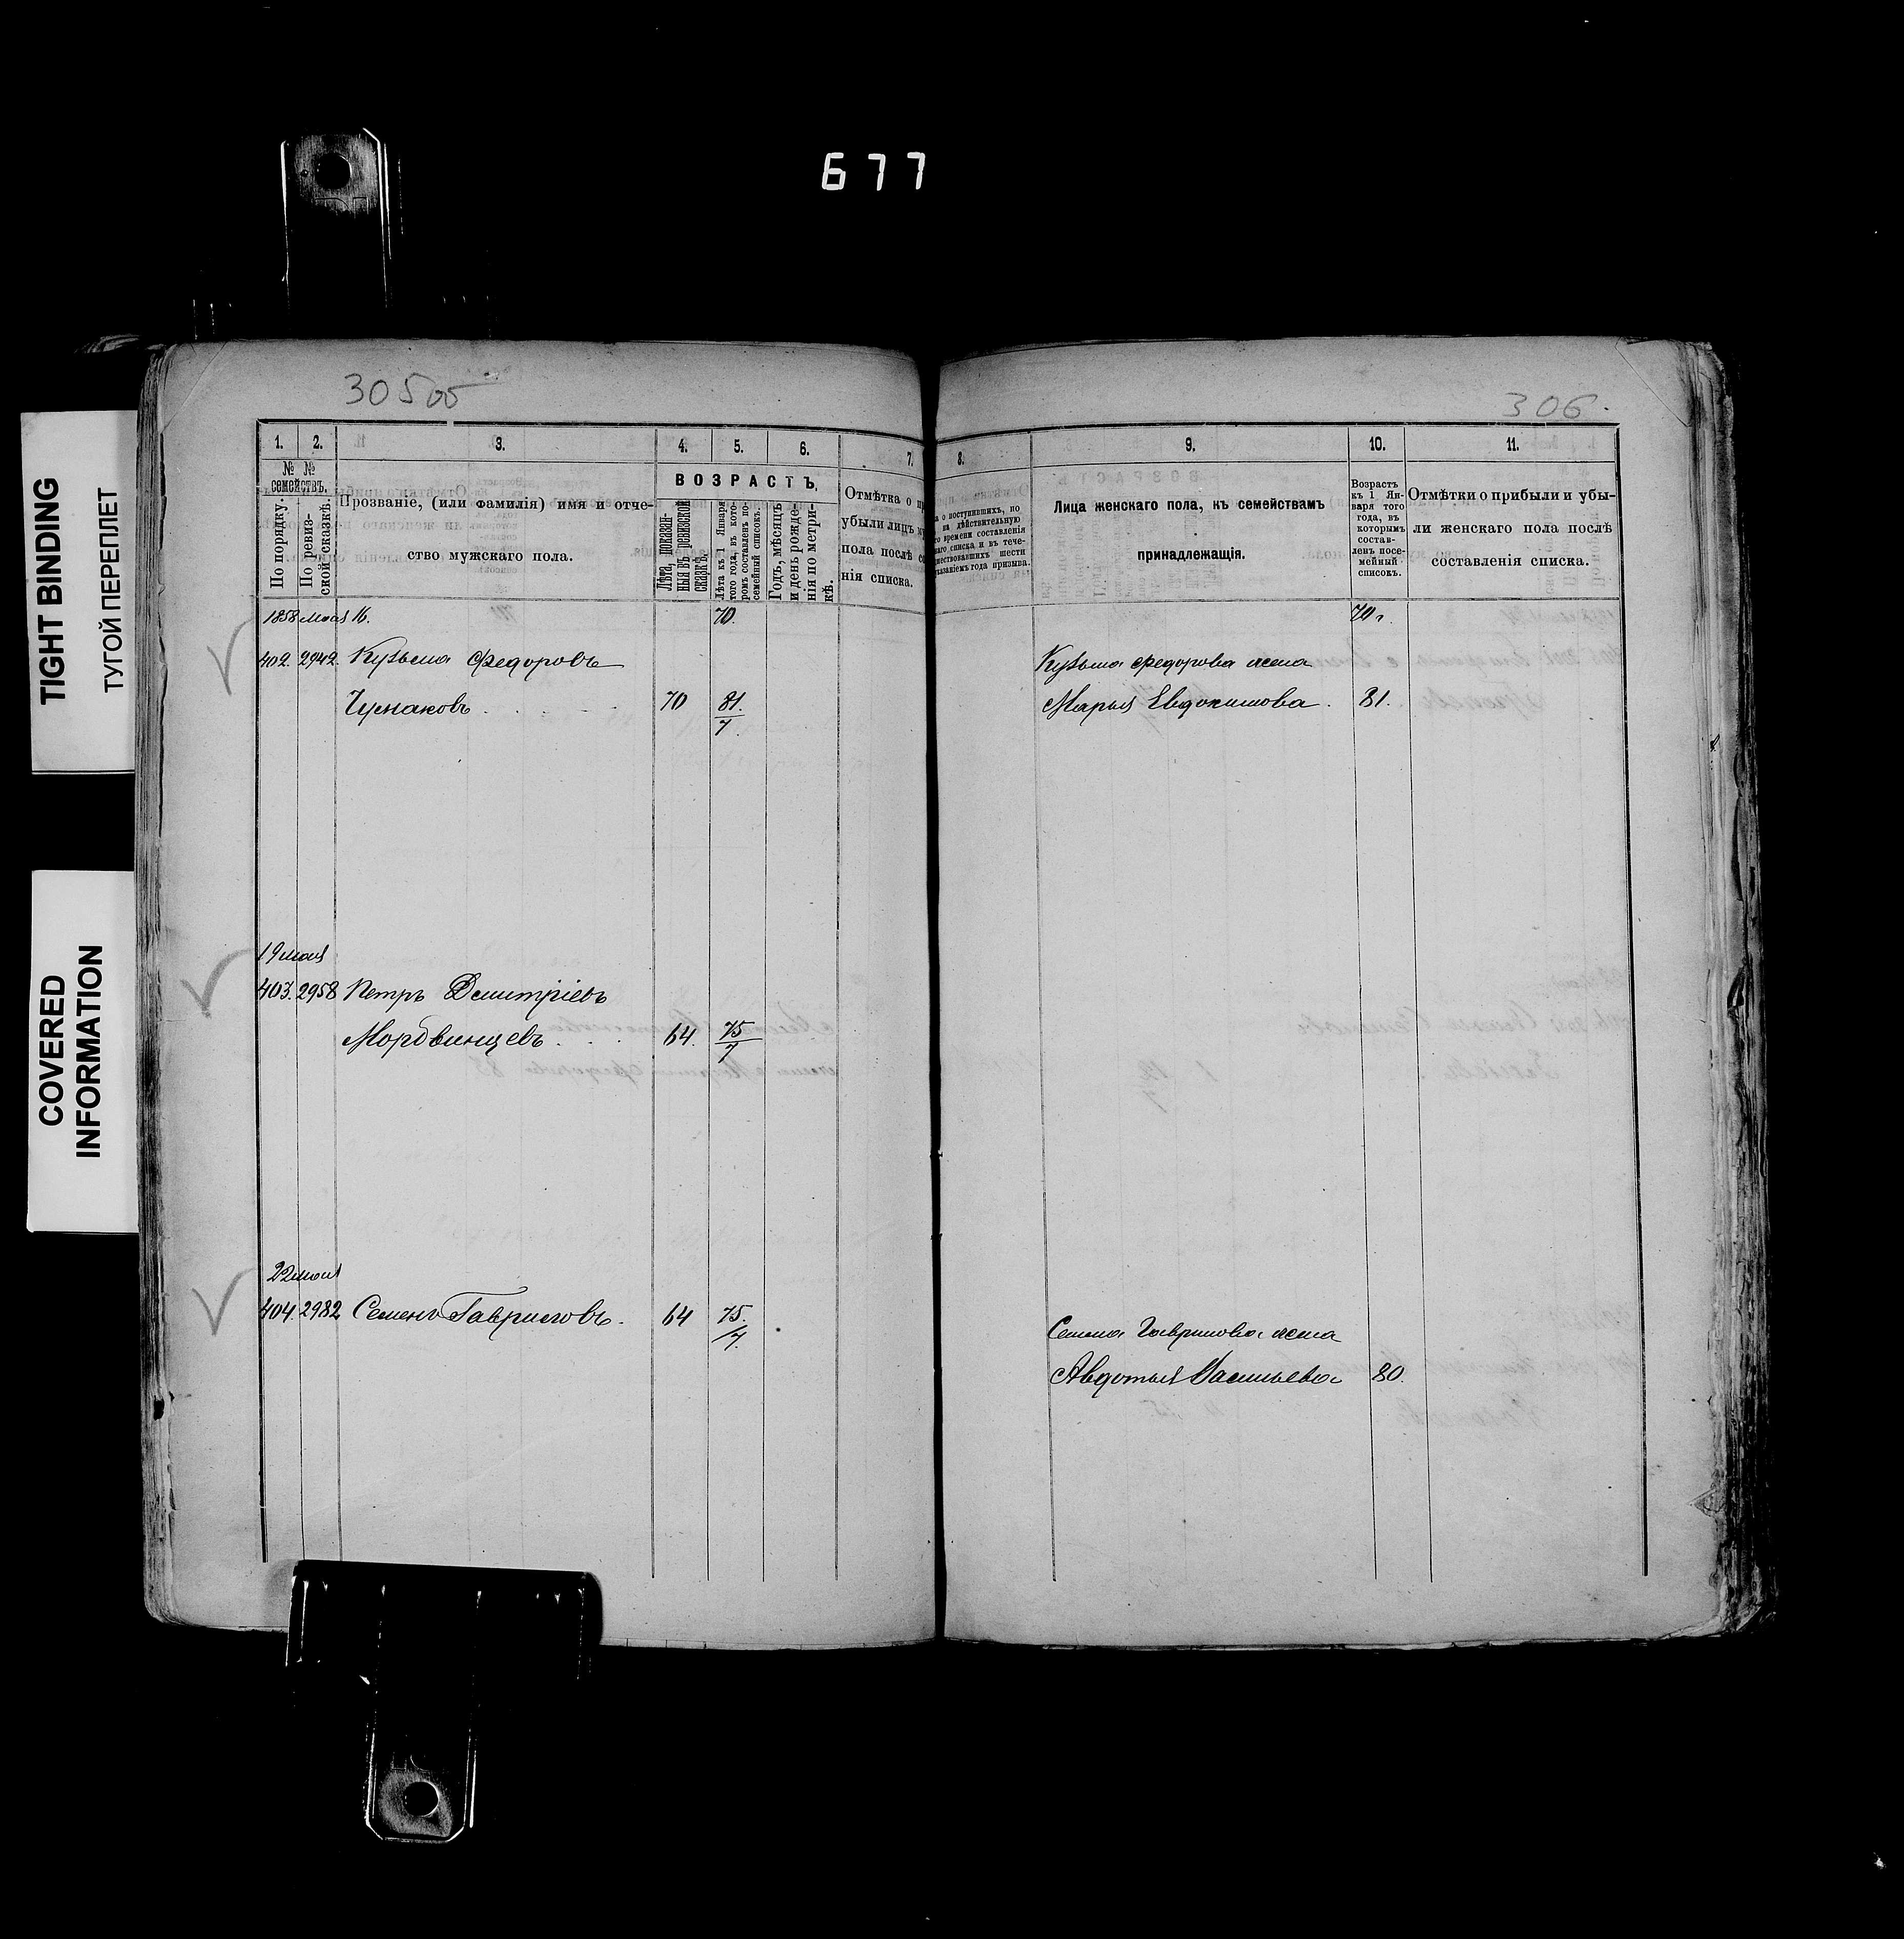 677
TIGHT BINDING
ТУГОЙ ПЕРЕПЛЕТ
COVERED
INFORMATION
305 об
1. 2. 3. 4. 5. 6. 7.
№ №
семействъ.
По порядку.
По ревиз-
ской сказкѣ.
Прозваніе, (или фамилія) имя и отче-
ство мужскаго пола.
ВОЗРАСТЪ,
Лѣта, показан-
ныя въ ревизской
сказкѣ.
Лѣта къ 1 Января
того года, въ кото-
ромъ составленъ по-
семейный списокъ.
Годъ, мѣсяцъ
и день рожде-
нія по метри-
кѣ.
Отмѣтка о пр
убыли лицъ м
пола послѣ с
нія списка.
1858 мая 16. 70.
402. 2942. Кузьма Федоровъ
Чумаковъ . . . . 70 81.
7.
19 мая
403. 2958 Петръ Дмитріевъ
Мордвинцевъ . . . 64. 75
7
22 мая
404. 2982 Семенъ Гавриловъ. 64 75.
7.
306.
8. 9. 10. 11.
а о поступившихъ, но
на дѣйствительную
о времени составленія
наго списка и въ тече-
шествовавшихъ шести
казаніемъ года призыва.
Лица женскаго пола, къ семействамъ
принадлежащія.
Возрастъ
къ 1 Ян-
варя того
года, въ
которымъ
состав-
ленъ посе-
мейный
списокъ.
Отмѣтки о прибыли и убы-
ли женскаго пола послѣ
составленія списка.
70 г.
Кузьма Федорова жена
Марья Евдокимова. 81.
Семена Гаврилова жена
Авдотья Васильева 80.